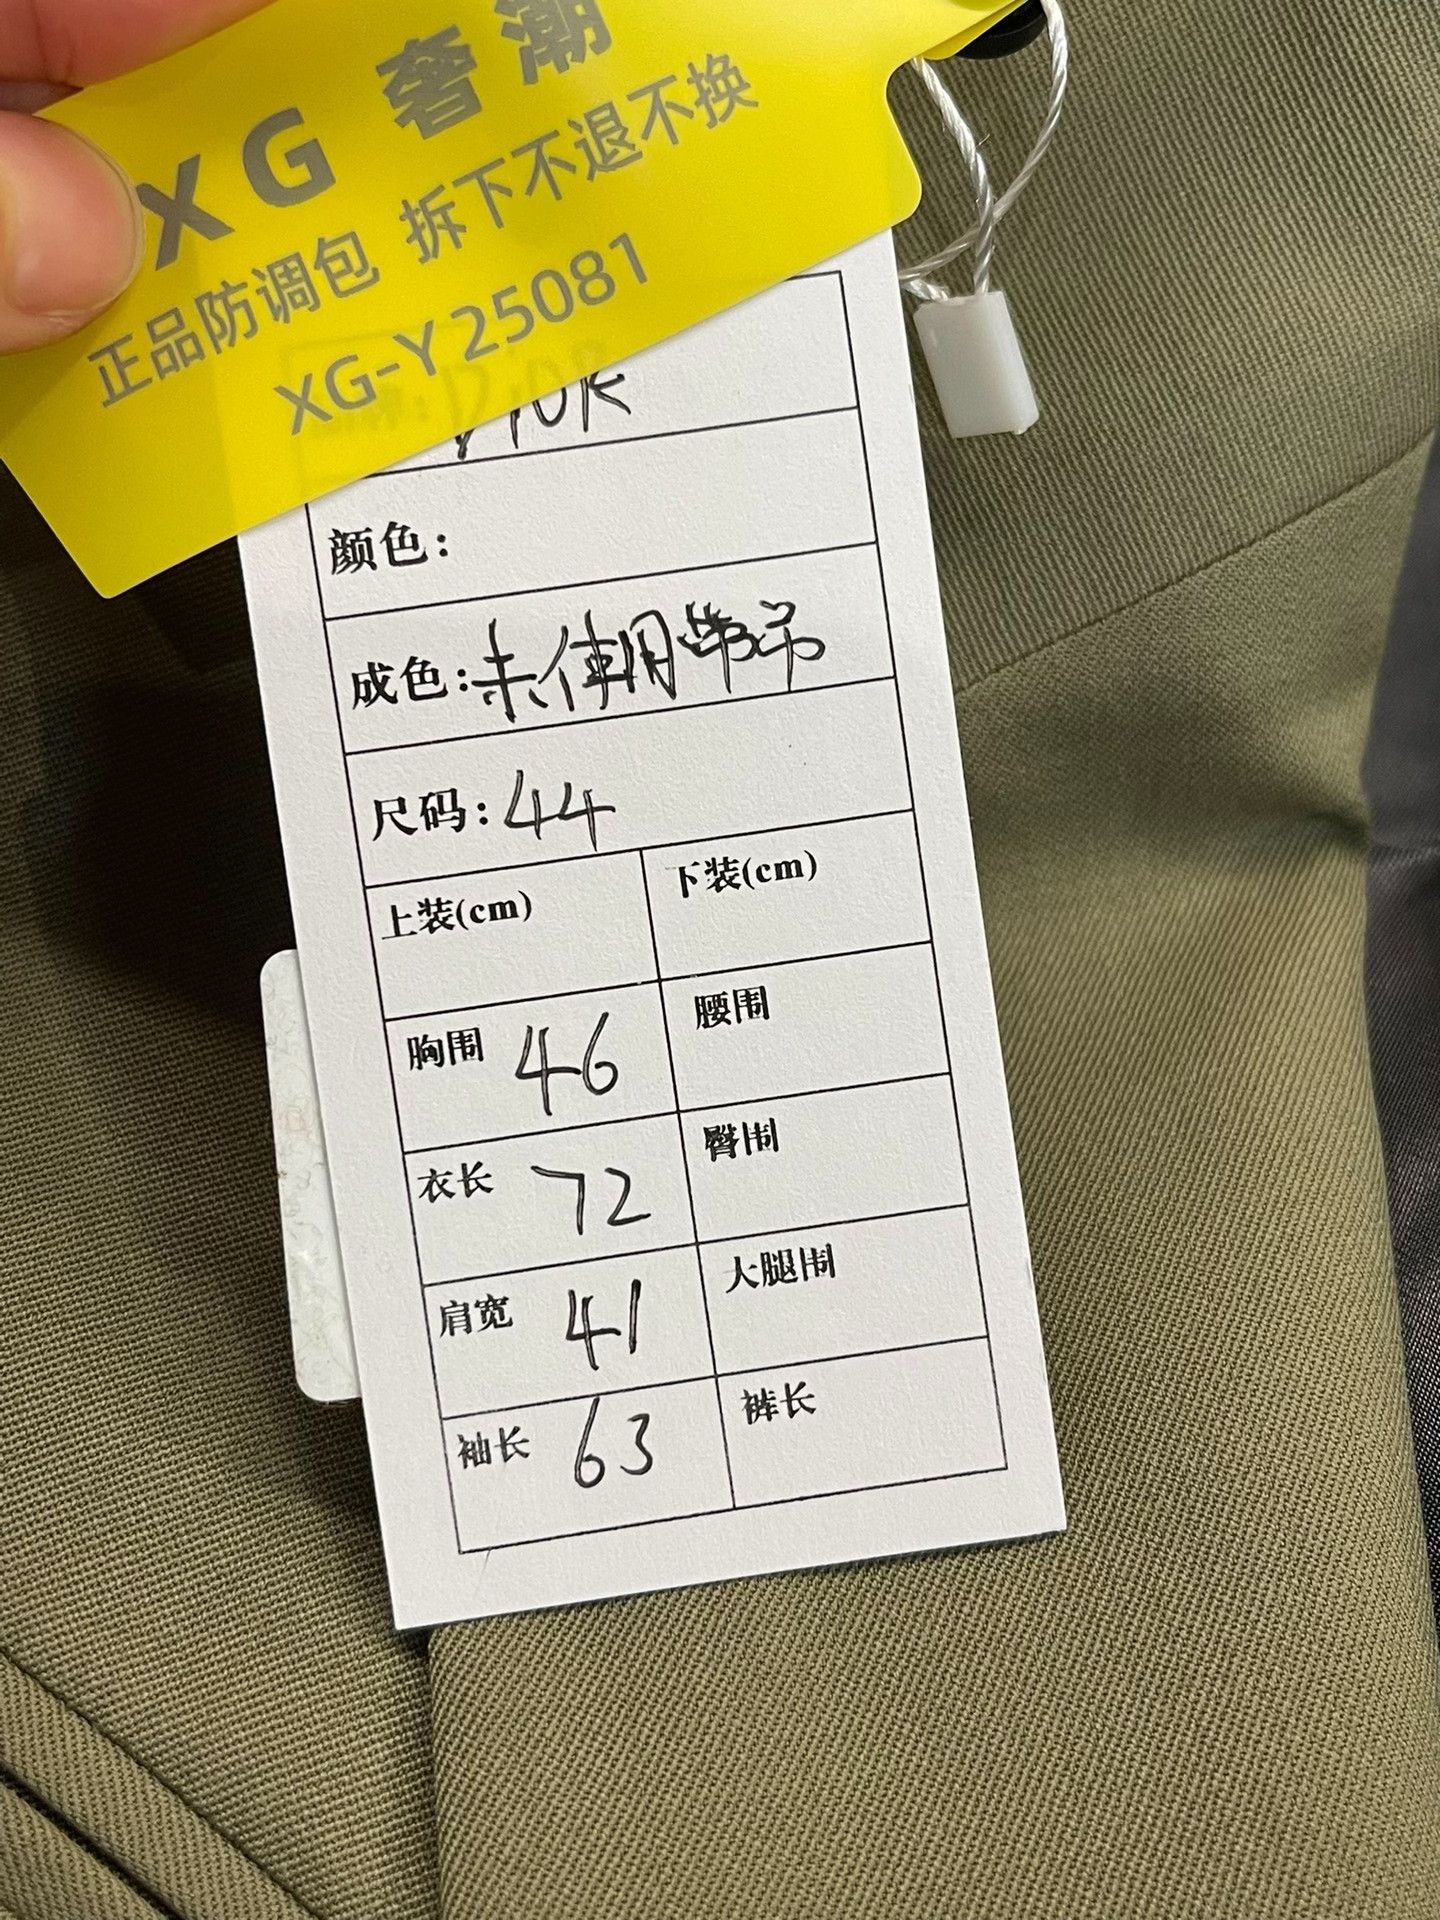 XG 奢潮
正品防调包 拆下不退不换
XG-Y25081
DiOR
颜色：
成色：未使用带吊
尺码：44
上装(cm) 下装(cm)
胸围 46 腰围
衣长 72 臀围
肩宽 41 大腿围
袖长 63 裤长